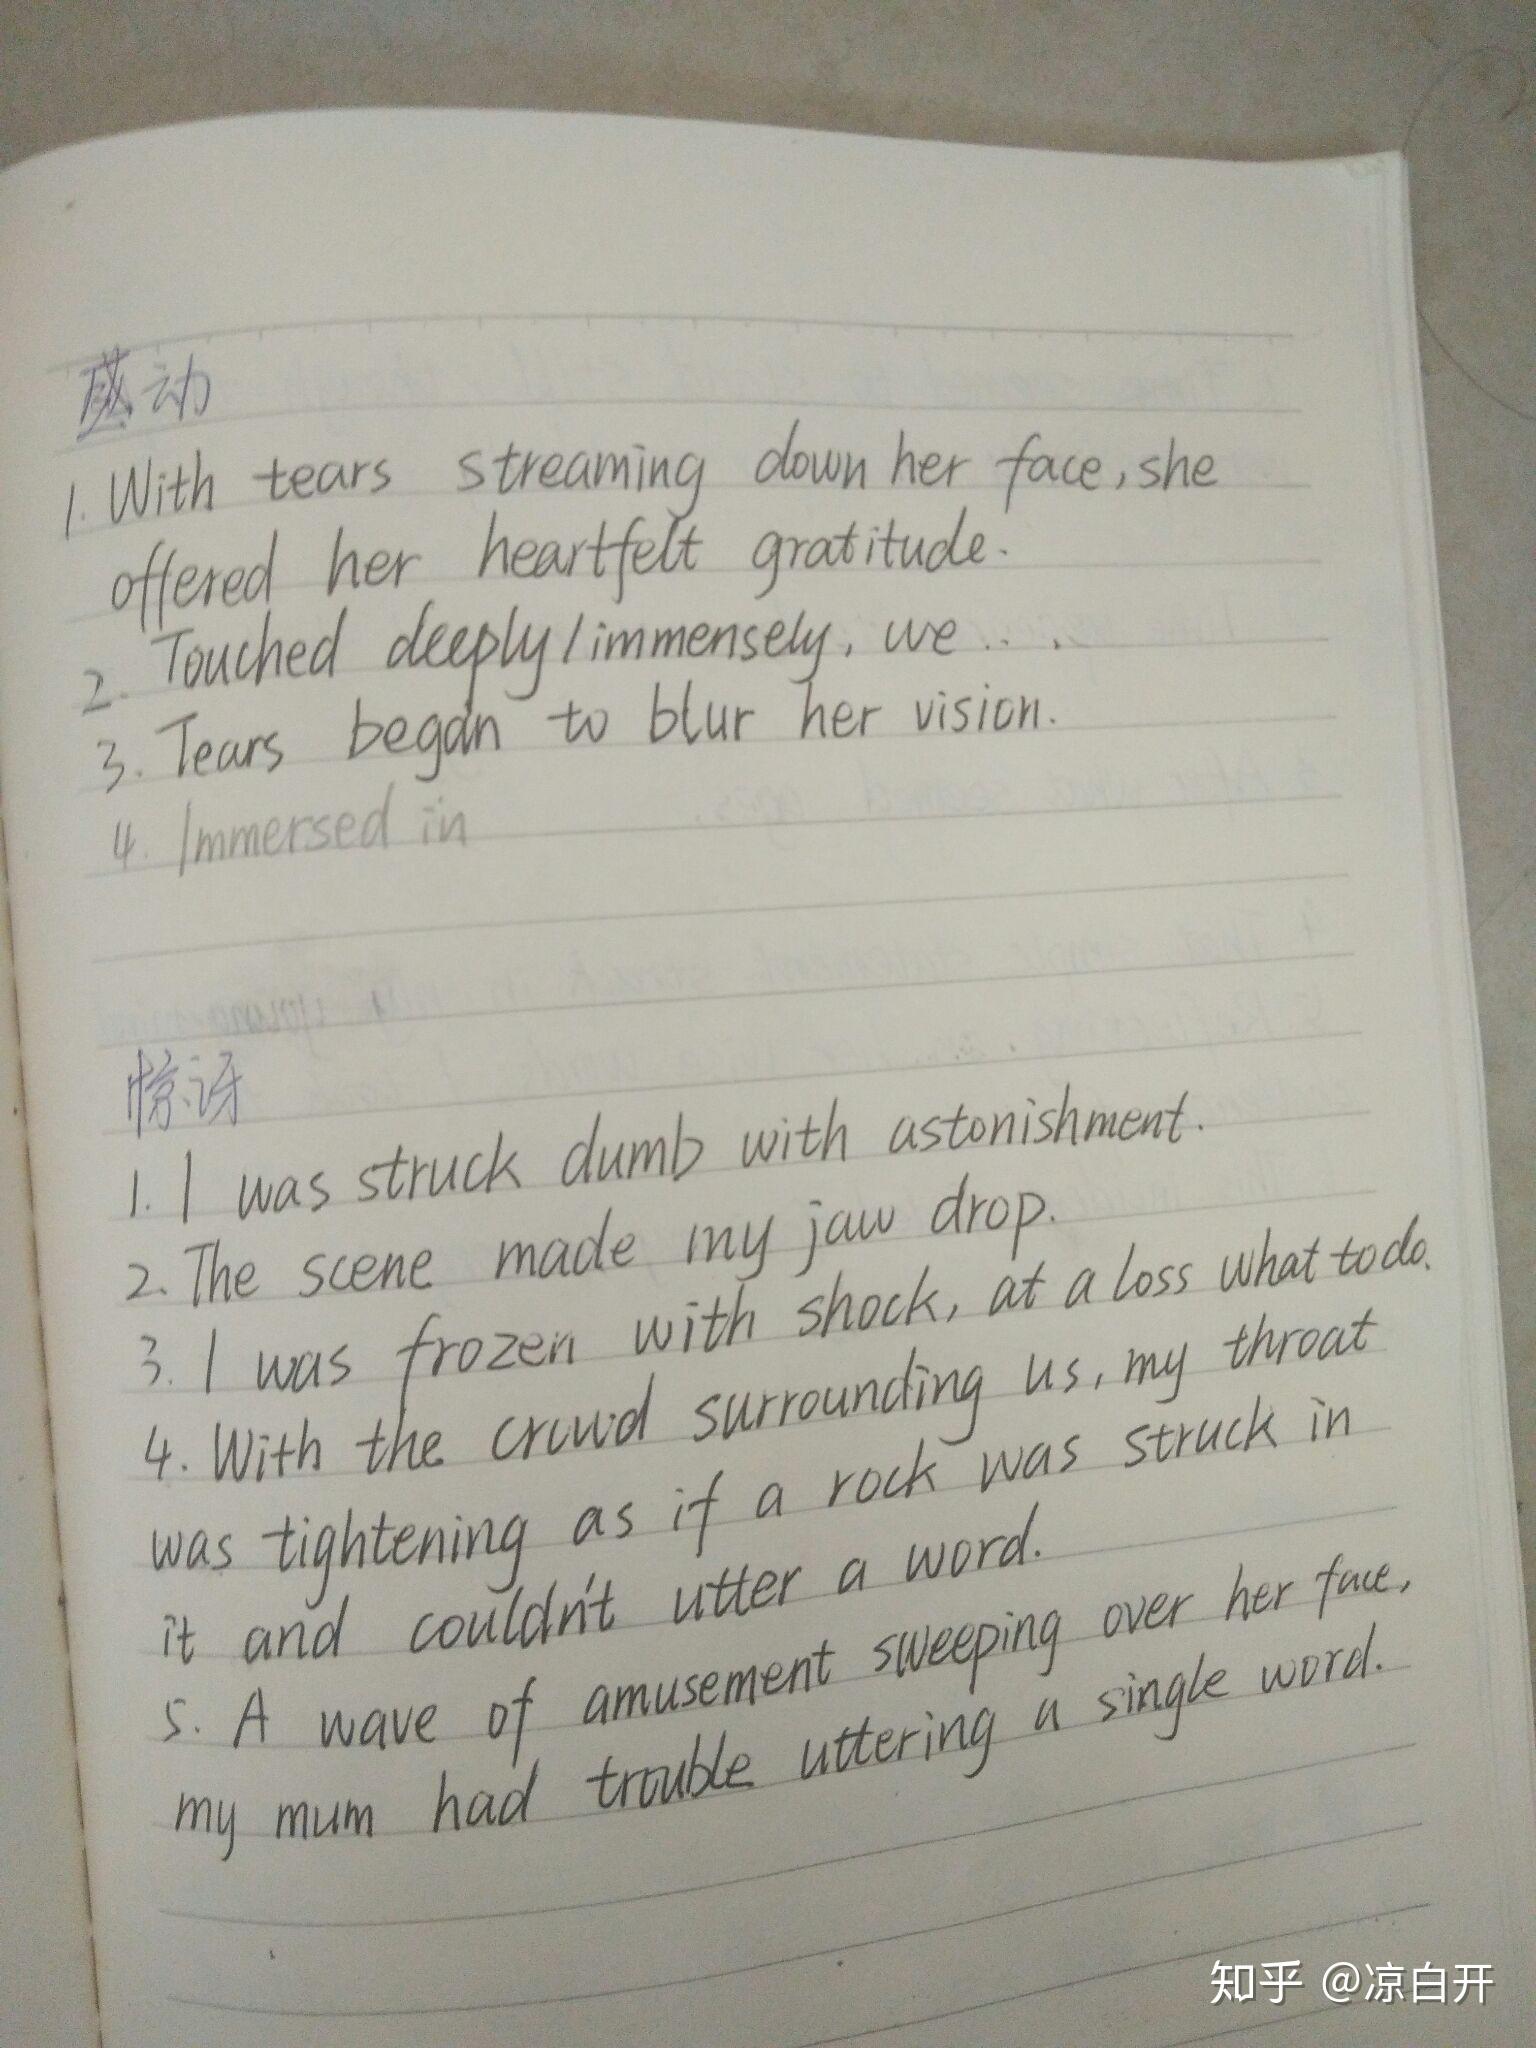 感动
1. With tears streaming down her face, she
offered her heartfelt gratitude.
2. Touched deeply/immensely, we ...
3. Tears began to blur her vision.
4. Immersed in
惊讶
1. I was struck dumb with astonishment.
2. The scene made my jaw drop.
3. I was frozen with shock, at a loss what to do.
4. With the crowd surrounding us, my throat
was tightening as if a rock was struck in
it and couldn't utter a word.
5. A wave of amusement sweeping over her face,
my mum had trouble uttering a single word.
知乎 @凉白开